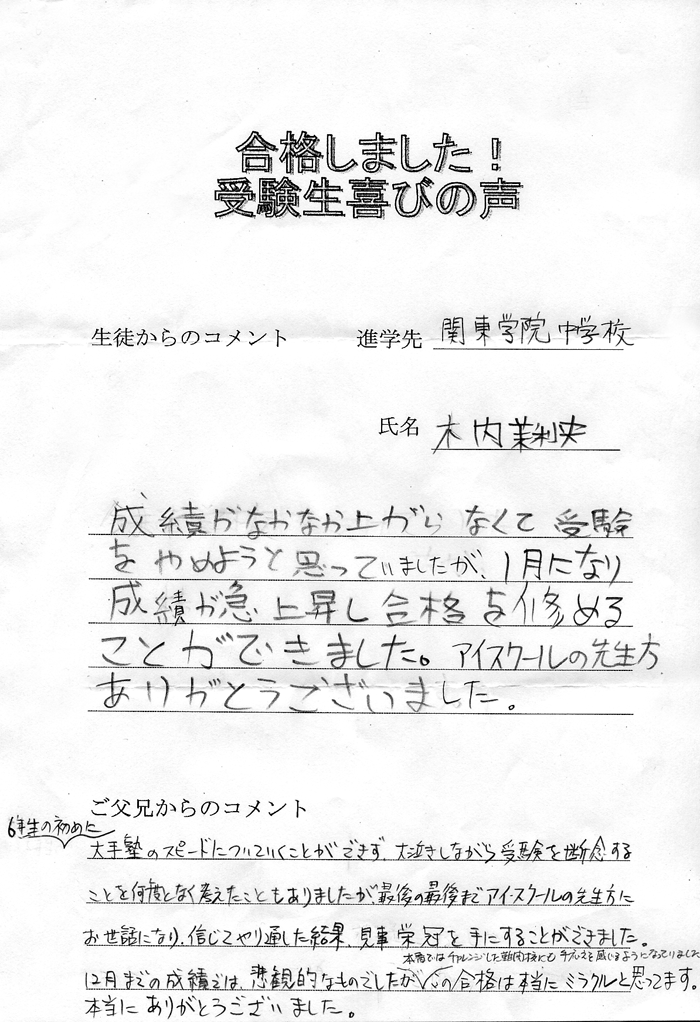 合格しました！
受験生喜びの声
生徒からのコメント 進学先 関東学院中学校
氏名 木内茉利央
成績がなかなか上がらなくて 受験
をやめようと思っていましたが、1月になり
成績が急上昇し合格を修める
ことができました。アイスクールの先生方
ありがとうございました。
ご父兄からのコメント
6年生の初めに
大手塾のスピードについていくことができず、大泣きしながら受験を断念する
ことを何度となく考えたこともありましたが最後の最後までアイ・スクールの先生方に
お世話になり、信じてやり通した結果、見事栄冠を手にすることができました。
本番ではチャレンジした難関校にも手ごたえを感じるようになっていました
12月までの成績では、悲観的なものでしたが の合格は本当にミラクルと思ってます。
本当にありがとうございました。